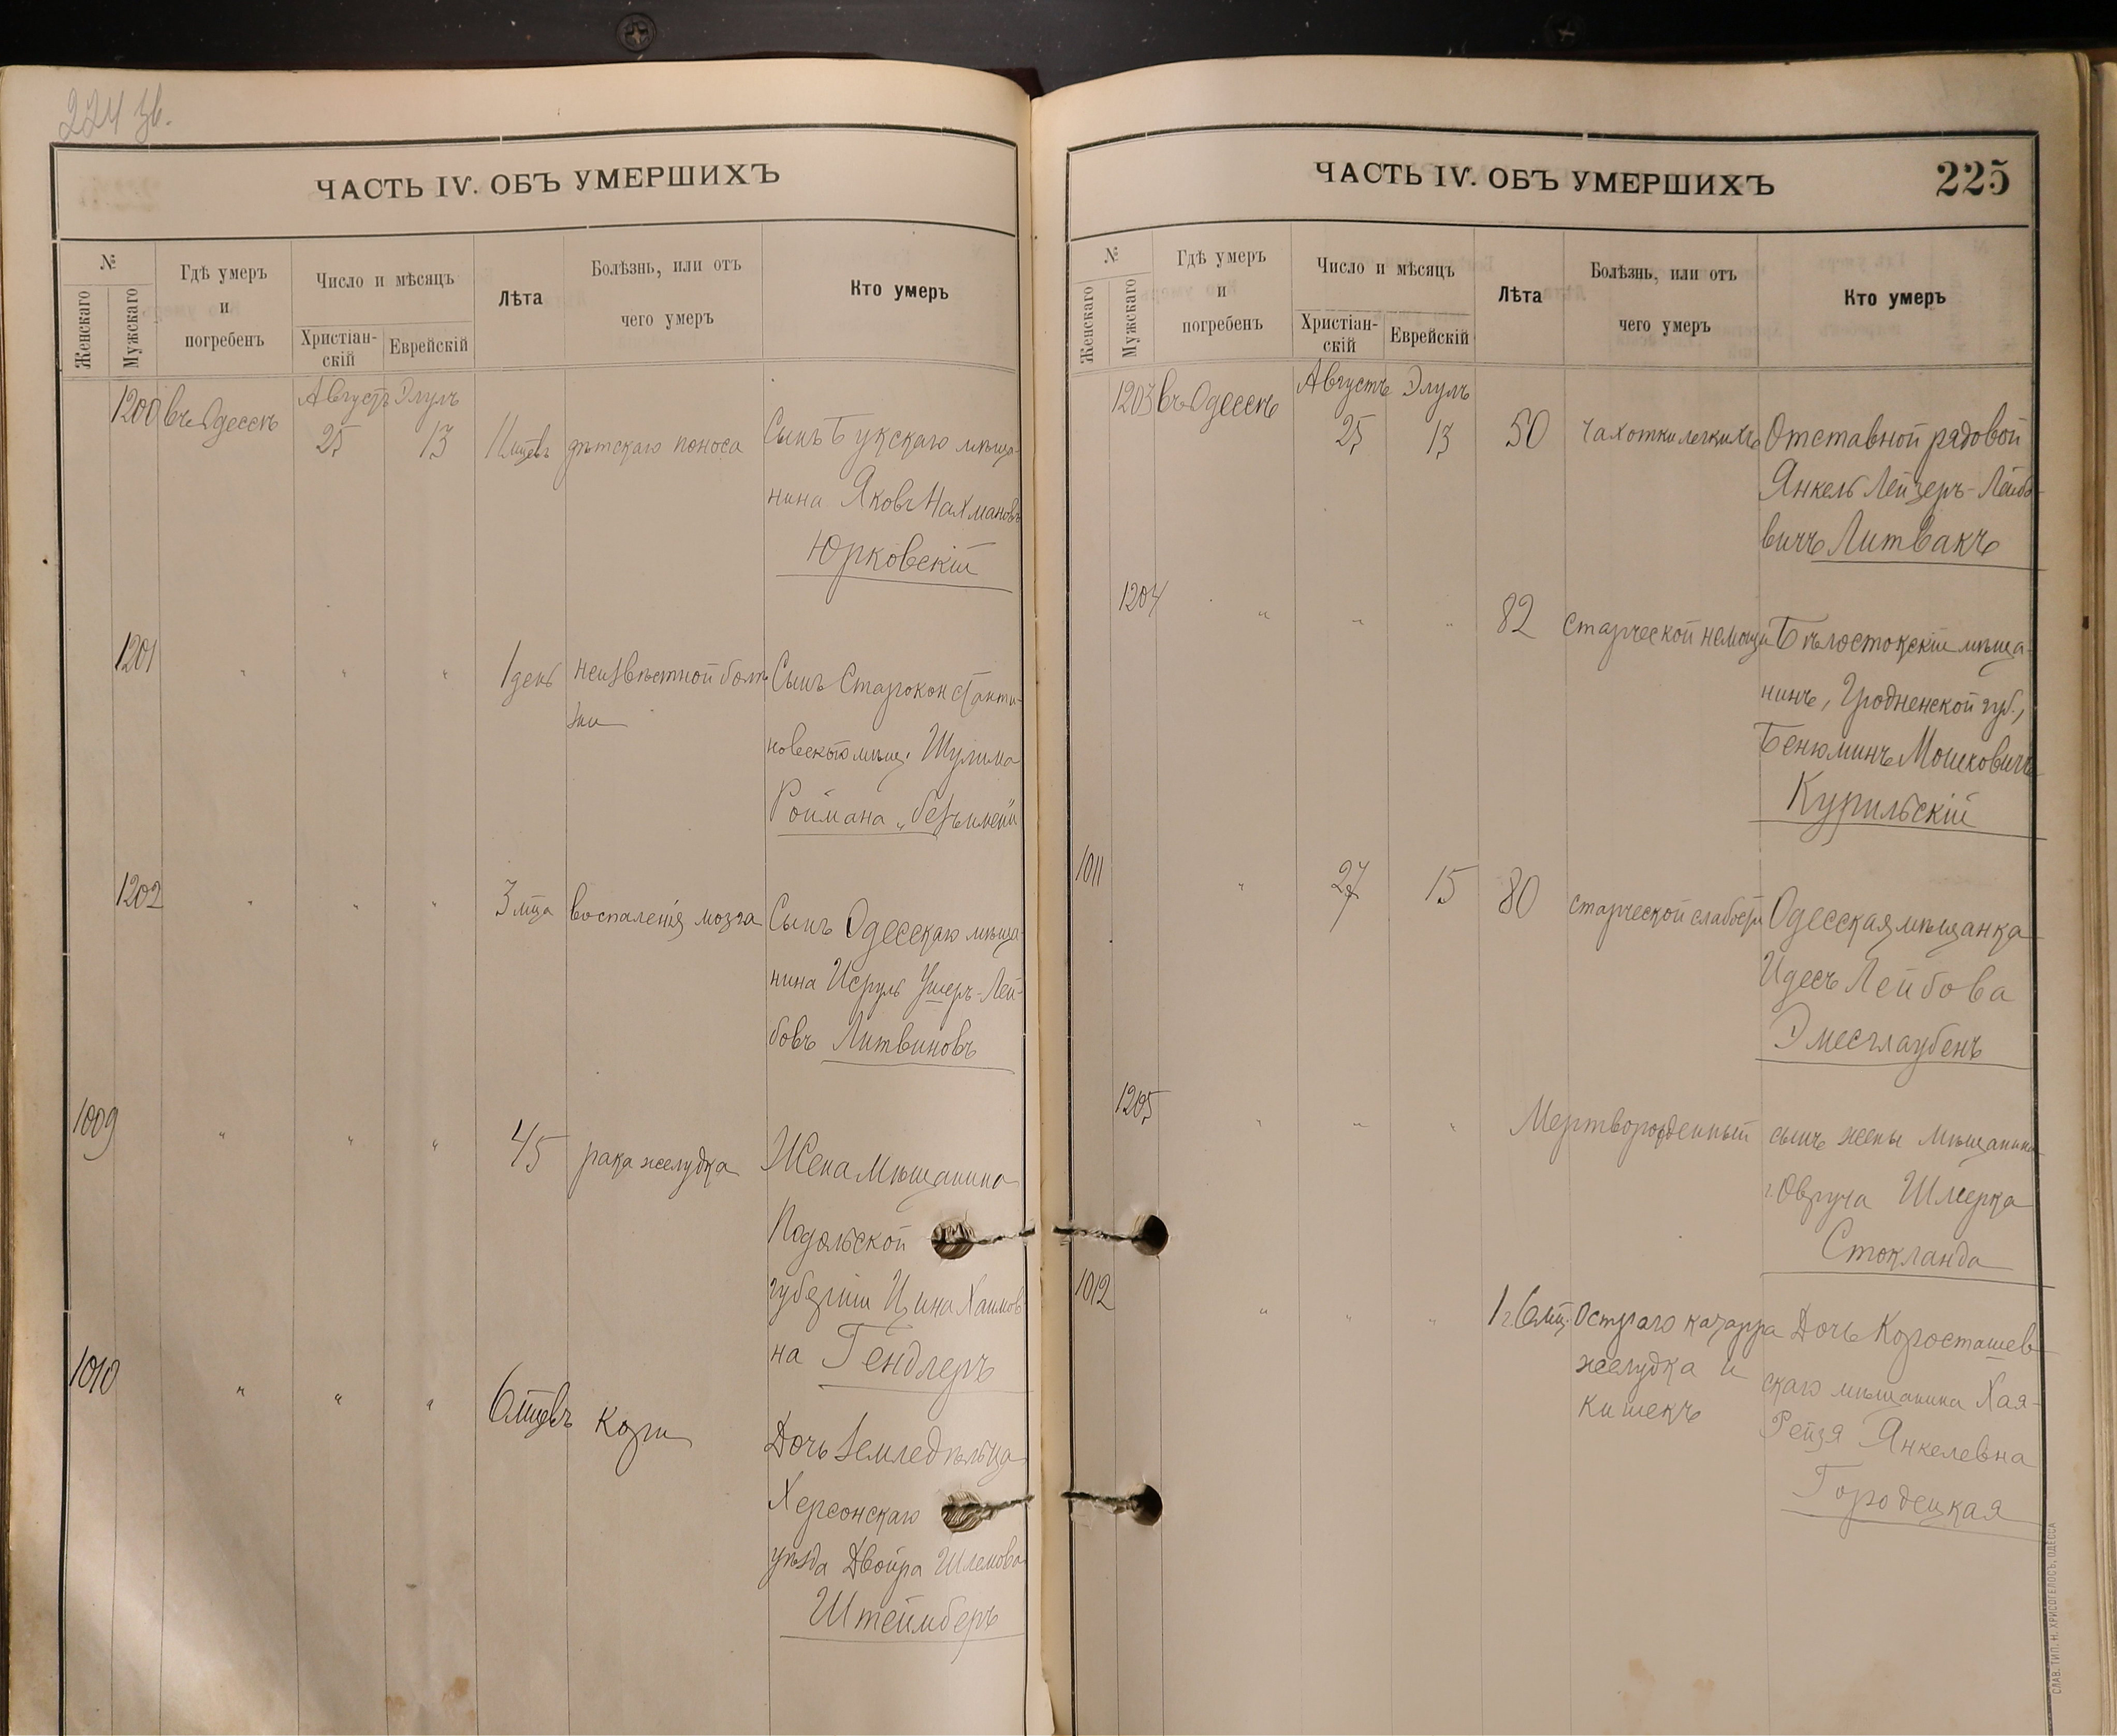 224 зв.
ЧАСТЬ IV. ОБЪ УМЕРШИХЪ
№
Женскаго
Мужскаго
Гдѣ умеръ
и
погребенъ
Число и мѣсяцъ
Христіан-
скій
Еврейскій
Лѣта
Болѣзнь, или отъ
чего умеръ
Кто умеръ
1200 въ Одессѣ Августъ Элулъ
25 13 11 мцевъ дѣтскаго поноса Сынъ Букскаго мѣща-
нина Яковъ Нахмановъ
Юрковскій
1201 " " " 1 день неизвѣстной болѣ-
зни
Сынъ Староконстанти-
новскаго мѣщ. Шулима
Роймана „безъ имени"
1202 " " " 3 мца воспаленія мозга Сынъ Одесскаго мѣща-
нина Исруль Ушеръ-Лей-
бовъ Литвиновъ
1009 " " " 45 рака желудка Жена мѣщанина
Подольской
губерніи Цина Хаимов-
на Гендлеръ
1010 " " " 6 мцевъ кори Дочь земледѣльца
Херсонскаго
уѣзда Двойра Шлемова
Штеймберъ
ЧАСТЬ IV. ОБЪ УМЕРШИХЪ
225
№
Женскаго
Мужскаго
Гдѣ умеръ
и
погребенъ
Число и мѣсяцъ
Христіан-
скій
Еврейскій
Лѣта
Болѣзнь, или отъ
чего умеръ
Кто умеръ
1203 въ Одессѣ Августъ Элулъ
25 13 50 чахотки легкихъ Отставной рядовой
Янкель Лейзеръ-Лейбо-
вичъ Литвакъ
1204 " " " 82 старческой немощи Бѣлостокскій мѣща-
нинъ, Гродненской губ.,
Бенюминъ Мошковичъ
Курильскій
1011 " 27 15 80 старческой слабости Одесская мѣщанка
Идесъ Лейбова
Эмесглаубенъ
1205 " " " Мертворожденный сынъ жены мѣщанина
г. Овруча Шмерка
Стокланда
1012 " " " 1 г. 6 мц. Остраго катарра
желудка и
кишекъ
Дочь Коросташев-
скаго мѣщанина Хая-
Рейзя Янкелевна
Городецкая
СЛАВ. ТИП. Н. ХРИСОГЕЛОСЪ, ОДЕССА